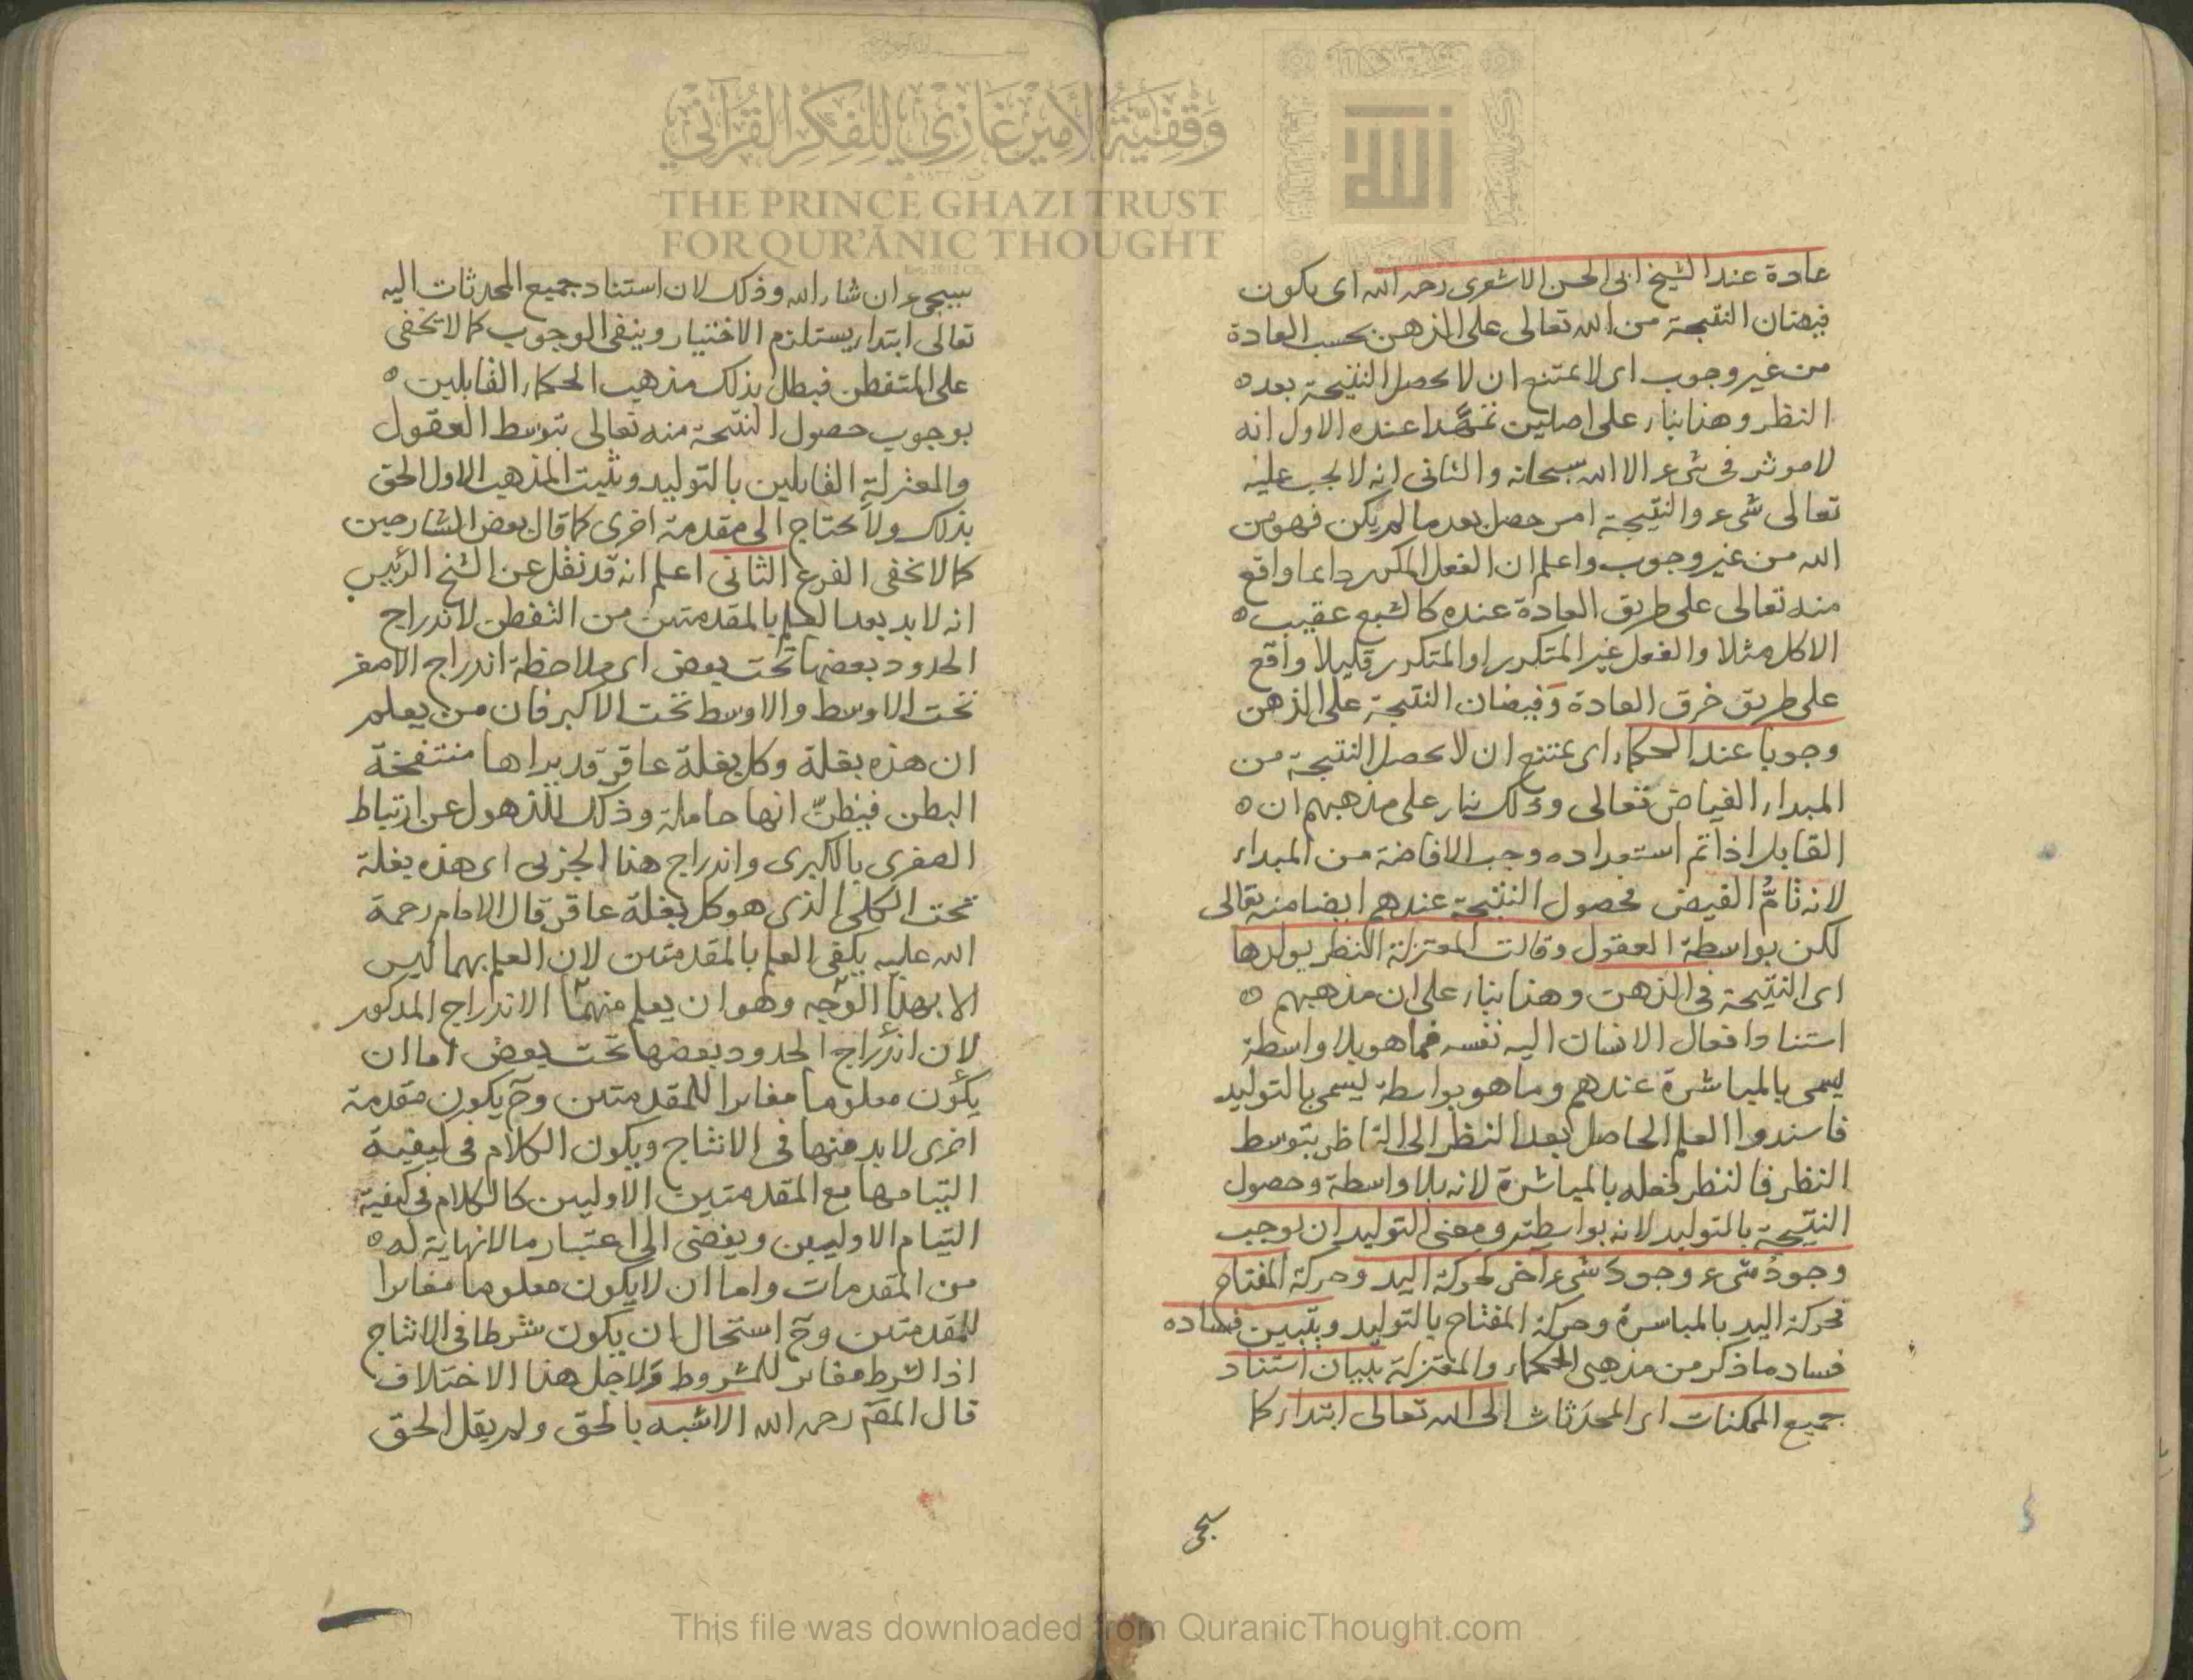 عادة عند الشيخ ابى الحسن الاشعرى رحمه الله اى يكون
فيضان النتيجة من الله تعالى على الذهن بحسب العادة
من غير وجوب اى لا يمتنع ان لا يحصل النتيجة بعده
النظر وهذا بناء على اصلين تمهدا عنده الاول انه
لا موثر فى شىء الا الله سبحانه والثانى انه لا يجب عليه
تعالى شىء والنتيجة امر حصل بعد ما لم يكن فهو من
الله من غير وجوب واعلم ان الفعل المكرر دايما واقع
منه تعالى على طريق العادة عنده كالشبع عقيب ه
الاكل مثلا والفعل غير المتكرر او المتكرر قليلا واقع
على طريق خرق العادة وفيضان النتيجة على الذهن
وجوبا عند الحكماء اى يمتنع ان لا يحصل النتيجة من
المبداء الفياض تعالى وذلك بناء على مذهبهم ان ه
القابل اذا تم استعداده وجب الافاضة من المبداء
لانه تامّ الفيض فحصول النتيجة عندهم ايضا منه تعالى
لكن بواسطة العقول وقالت المعتزلة النظر يولدها
اى النتيجة فى الذهن وهذا بناء على ان مذهبهم ه
استناد افعال الانسان اليه نفسه فما هو بلا واسطة
يسمى بالمباشرة عندهم وما هو بواسطة يسمى بالتوليد
فاسندوا العلم الحاصل بعد النظر الى الناظر بتوسط
النظر فالنظر فعله بالمباشرة لانه بلا واسطة وحصول
النتيجة بالتوليد لانه بواسطته ومعنى التوليد ان يوجب
وجودُ شىء وجودَ شىء اخر كحركة اليد وحركة المفتاح
فحركة اليد بالمباشرة وحركة المفتاح بالتوليد ويتبين فساده
فساد ما ذكر من مذهبى الحكماء والمعتزلة ببيان استناد
جميع الممكنات اى المحدثات الى الله تعالى ابتداء كا
سيجى
سيجىء ان شاء الله وذلك لان استناد جميع المحدثات اليه
تعالى ابتداء يستلزم الاختيار وينفى الوجوب كما لا يخفى
على المتفطن فبطل بذلك مذهب الحكماء القايلين ه
بوجوب حصول النتيجة منه تعالى بتوسط العقول
والمعتزلة القايلين بالتوليد ويثبت المذهب الاول الحق
بذلك ولا يحتاج الى مقدمة اخرى كما قال بعض الشارحين
كما لا يخفى الفرع الثانى اعلم انه قد نقل عن الشيخ الرئيس
انه لا بد بعد العلم بالمقدمتين من التفطن لاندراج
الحدود بعضها تحت بعض اى ملاحظة اندراج الاصغر
تحت الاوسط والاوسط تحت الاكبر فان من يعلم
ان هذه بغلة وكل بغلة عاقر قد يراها منتفخة
البطن فيظنّ انها حاملة وذلك للذهول عن ارتباط
الصغرى بالكبرى واندراج هذا الجزئى اى هذه بغلة
تحت الكلى الذى هو كل بغلة عاقر قال الامام رحمة
الله عليه يكفى العلم بالمقدمتين لان العلم بهما ليس
الا بهذا الوجه وهو ان يعلم منهما الاندراج المذكور
لان اندراج الحدود بعضها تحت بعض اما ان
يكون معلوما مغايرا للمقدمتين وح يكون مقدمة
اخرى لا بد منها فى الانتاج ويكون الكلام فى كيفية
التيامها مع المقدمتين الاوليين كالكلام فى كيفية
التيام الاوليين ويفضى الى اعتبار ما لا نهاية له ه
من المقدمات واما ان لا يكون معلوما مغايرا
للمقدمتين وح استحال ان يكون شرطا فى الانتاج
اذ الشرط مغاير للمشروط ولاجل هذا الاختلاف
قال المص رحمه الله الاشبه بالحق ولم يقل الحق
وقفية الأمير غازي للفكر القرآني
THE PRINCE GHAZI TRUST
FOR QUR'ĀNIC THOUGHT
This file was downloaded from QuranicThought.com